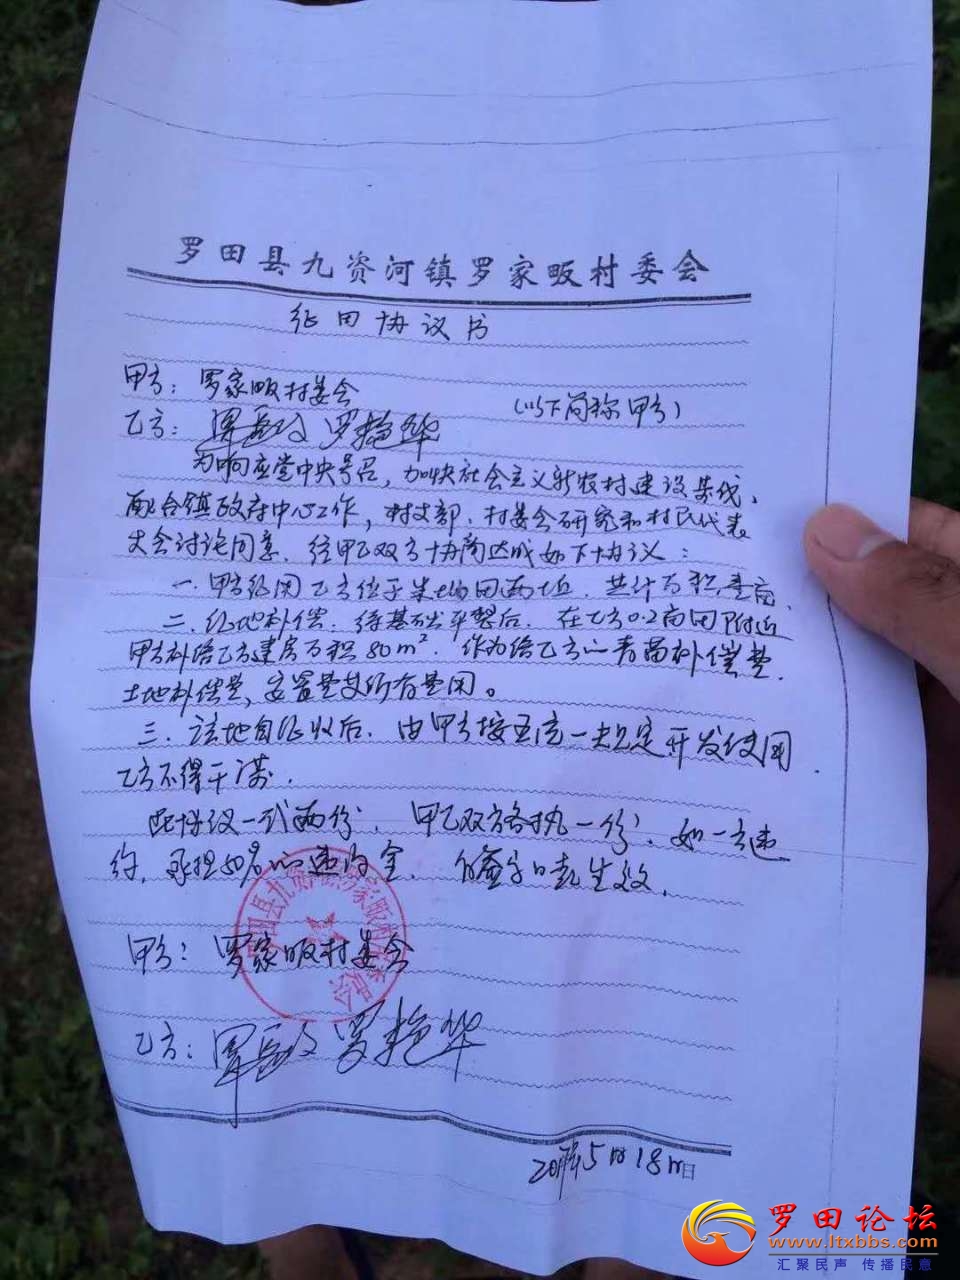 罗田县九资河镇罗家畈村委会
征田协议书
甲方：罗家畈村委会 （以下简称甲方）
乙方： 罗艳华
为响应党中央号召，加快社会主义新农村建设步伐、
配合镇政府中心工作，村支部、村委会研究和村民代表
大会讨论同意、经甲乙双方协商达成如下协议：
一、甲方征用乙方位于 田两丘、共计面积壹亩、
二、征地补偿：待基础平整后、在乙方0.2亩田附近
甲方补给乙方建房面积80m²．作为给乙方的青苗补偿费、
土地补偿费、安置费等所有费用。
三、该地自征收后、由甲方按 统一规定开发使用
乙方不得干涉．
此协议一式两份、甲乙双方各执一份，如一方违
约，承担50%的违约金．自签字日起生效．
甲方：罗家畈村委会
罗田县九资河镇罗家畈村村民委员会
乙方： 罗艳华
5月18日
罗田论坛
www.ltxbbs.com
汇聚民声 传播民意